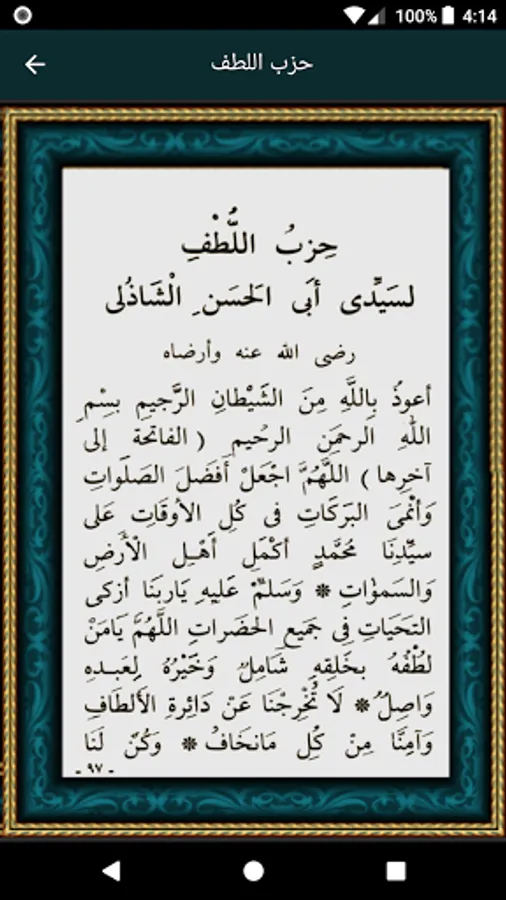 100% 4:14
حزب اللطف
حِزبُ اللُّطْفِ
لسَيِّدى أبَى الحَسَنِ الْشَاذُلى
رضى الله عنه وأرضاه
أعوذُ بِاللَّهِ مِنَ الشَيْطانِ الرَّجيمِ بِسْمِ
اللّٰهِ الرحمَنِ الرحُيمِ ( الفاتحة إلى
آخرِها ) اللَّهُمَّ اجْعَلْ أَفضَلَ الصَلَواتِ
وَأَنْمىَ البَرَكَاتِ فى كُلِ الأوقَاتِ عَلى
سيِّدِنَا مُحَمَّدٍ أكْمَلِ أهْلِ الْأَرضِ
وَالسَموٰاتِ * وَسَلمْ عَليهِ يَاربنَا أزكى
التحَيَاتِ فِى جَميَعِ الحضَراتِ اللَّهُمَّ يَامَنْ
لُطْفُهُ بخَلِقهِ شَامِلٌ وَخَيْرُهُ لِعَبدِهِ
وَاصِلٌ * لَا تُخْرِجْنَا عَنْ دَائِرةِ الْأَلطَافِ
وَآمِنَّا مِنْ كُلِ مَانخَافُ * وَكُنْ لَنَا
- ٩٧ -